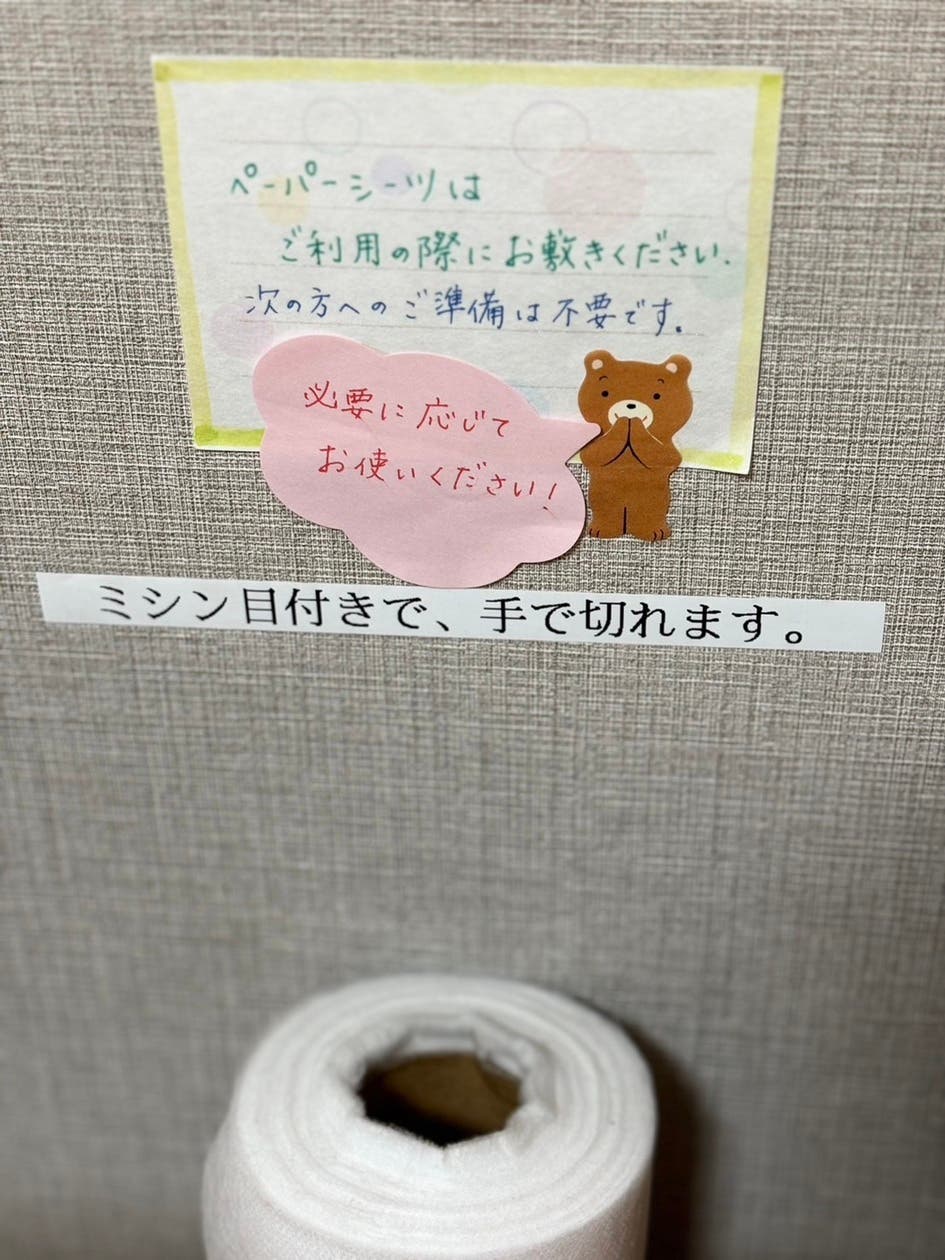 ペーパーシーツは
ご利用の際にお敷きください.
次の方へのご準備は不要です。
必要に応じて
お使いください!
ミシン目付きで、手で切れます。